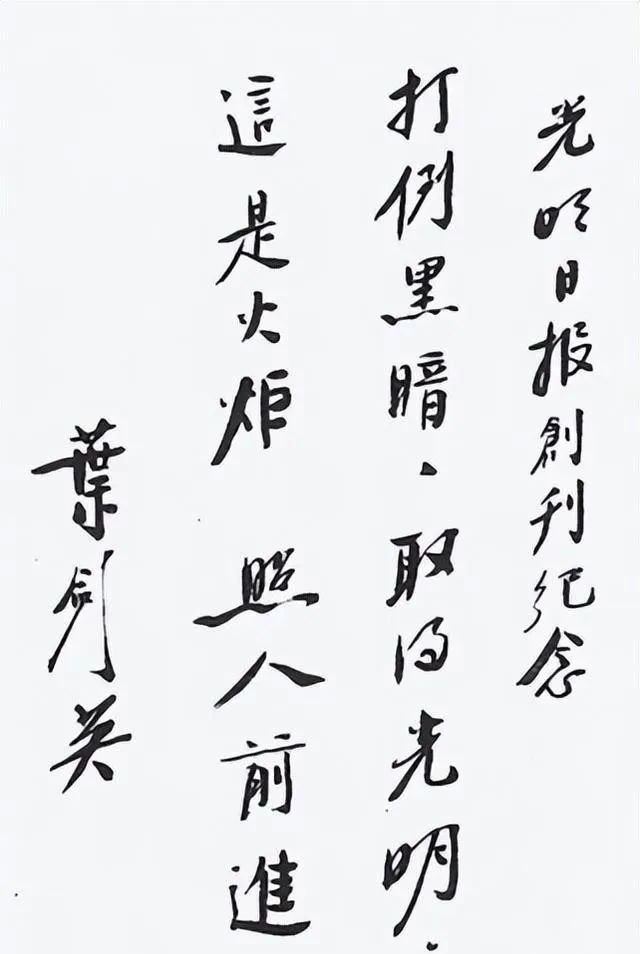 光明日报創刊纪念
打倒黑暗．取得光明．
這是火炬 照人前進
葉剑英